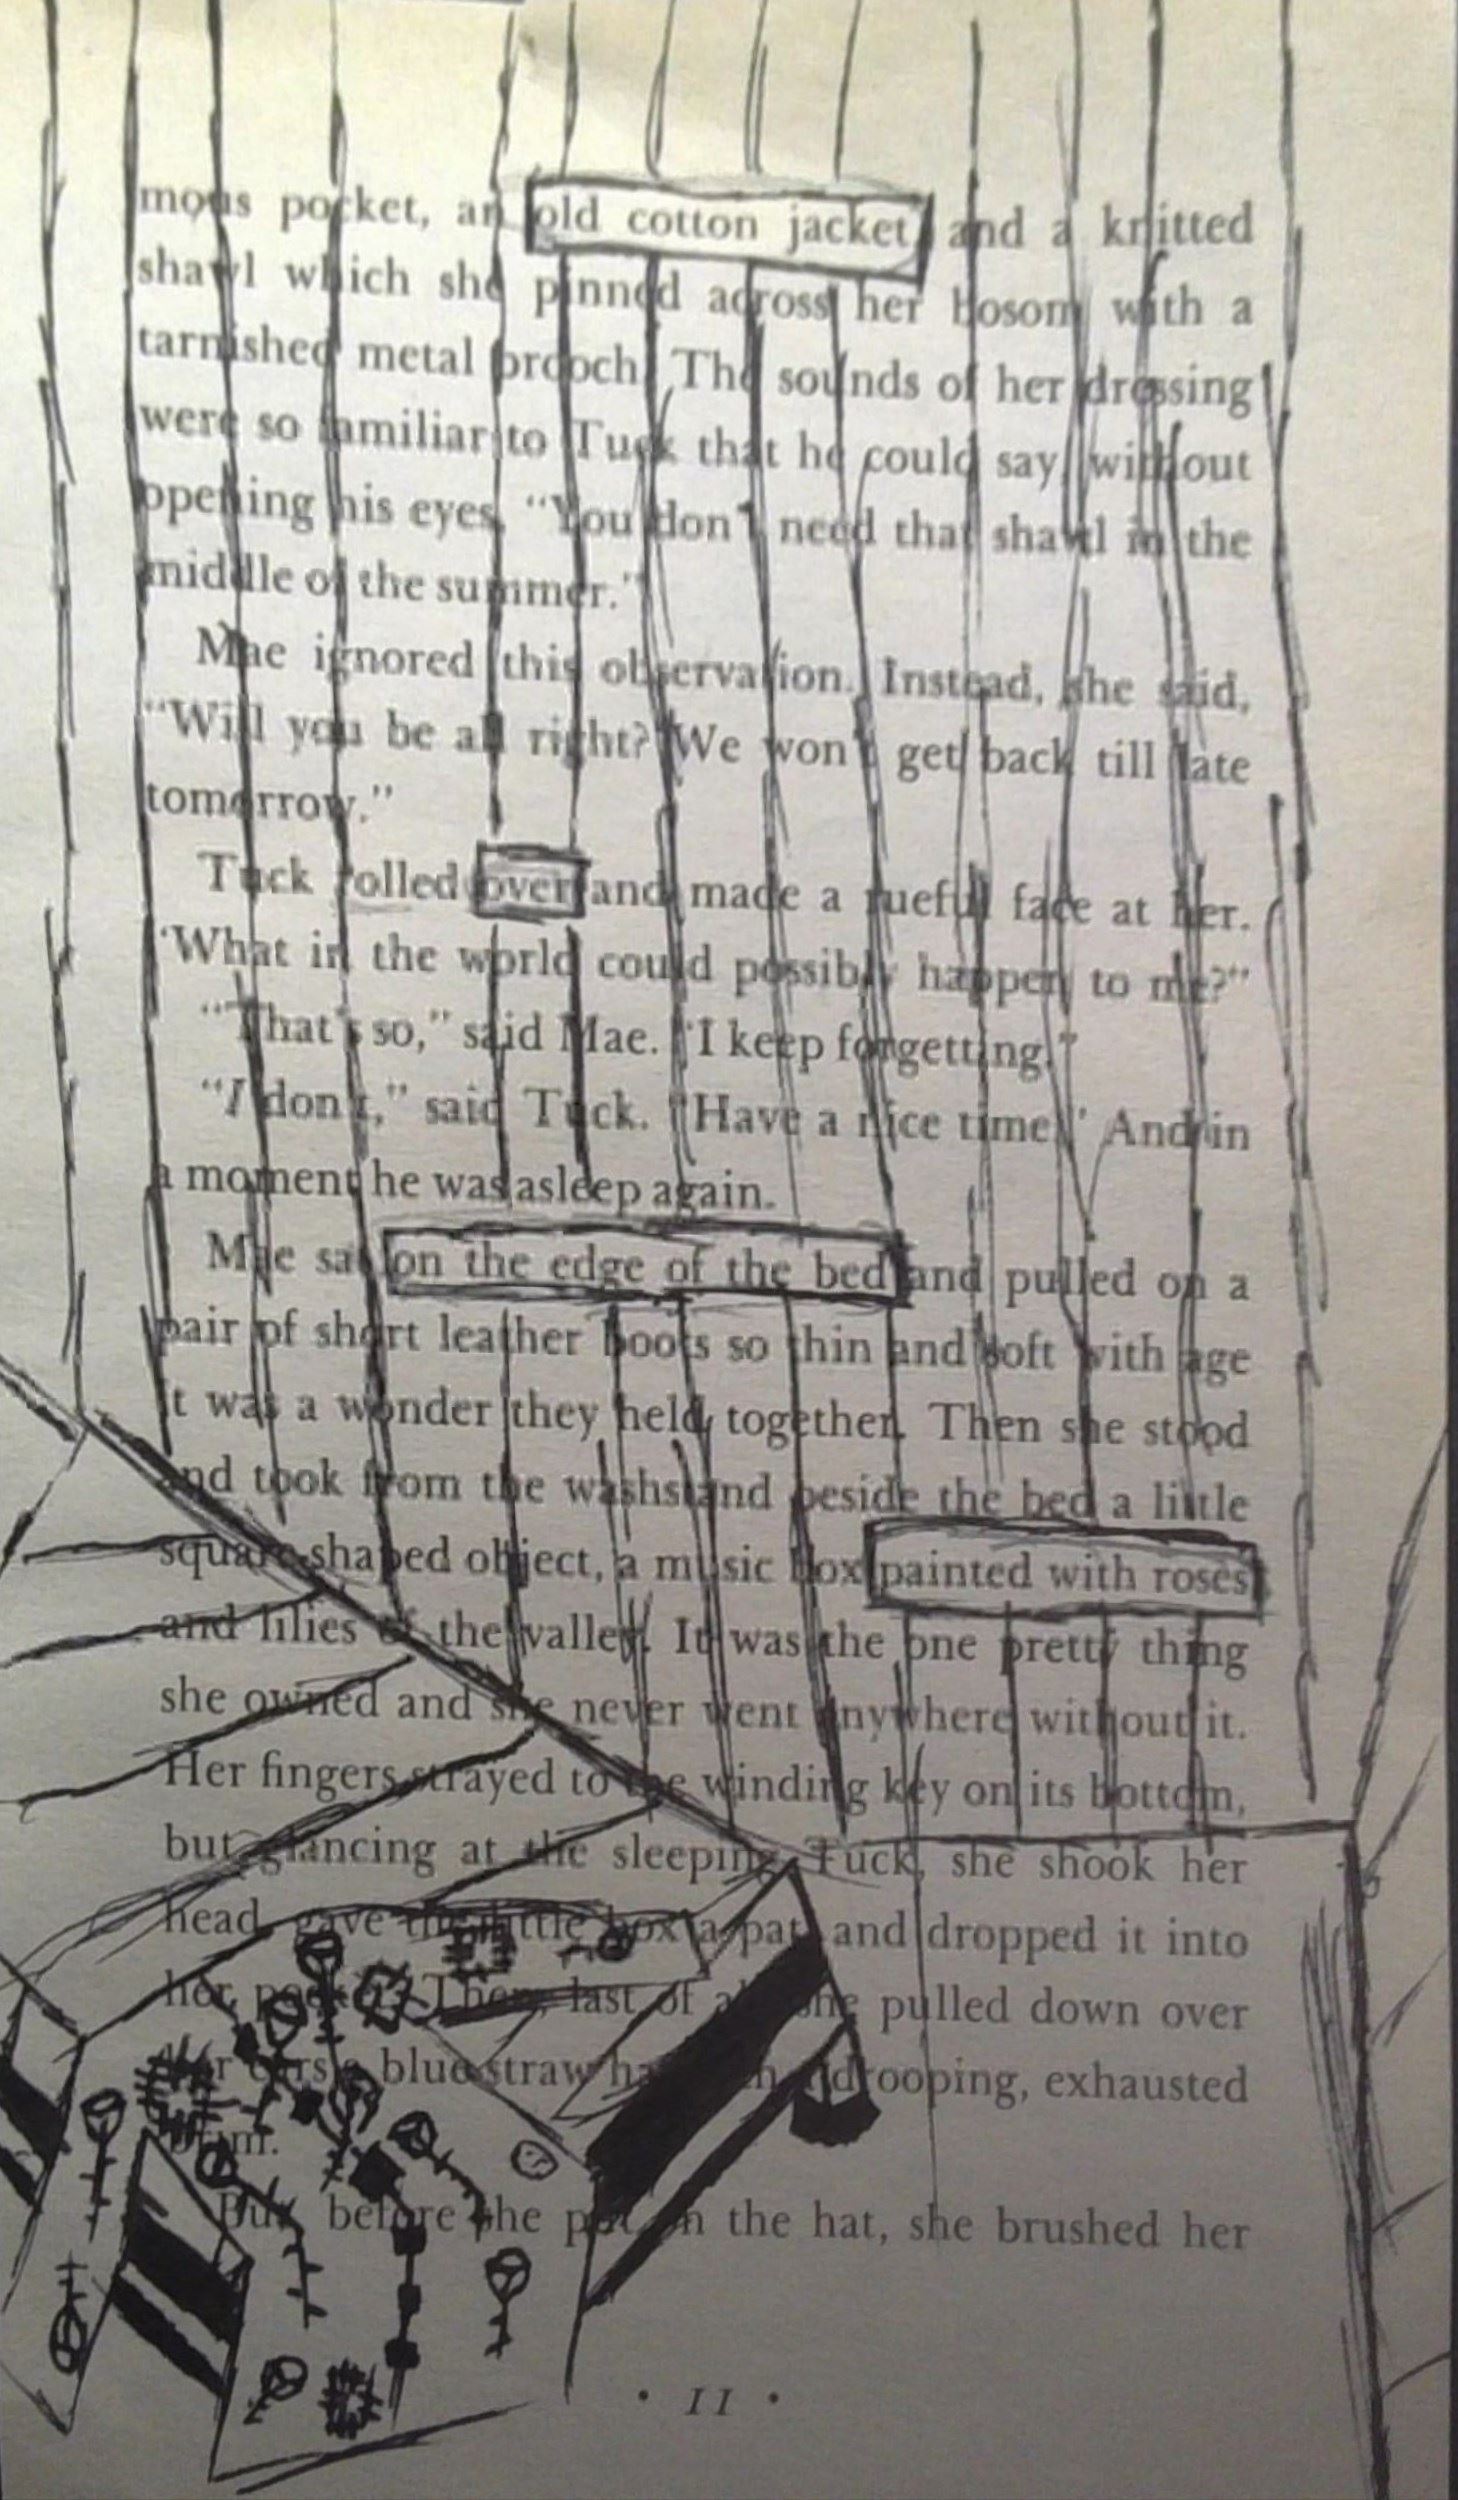 mous pocket, an old cotton jacket, and a knitted
shawl which she pinned across her bosom with a
tarnished metal brooch. The sounds of her dressing
were so familiar to Tuck that he could say, without
opening his eyes, “You don’t need that shawl in the
middle of the summer.”
Mae ignored this observation. Instead, she said,
“Will you be all right? We won’t get back till late
tomorrow.”
Tuck rolled over and made a rueful face at her.
“What in the world could possibly happen to me?”
“That’s so,” said Mae. “I keep forgetting.”
“I don’t,” said Tuck. “Have a nice time.” And in
a moment he was asleep again.
Mae sat on the edge of the bed and pulled on a
pair of short leather boots so thin and soft with age
it was a wonder they held together. Then she stood
and took from the washstand beside the bed a little
square-shaped object, a music box painted with roses
and lilies of the valley. It was the one pretty thing
she owned and she never went anywhere without it.
Her fingers strayed to the winding key on its bottom,
but glancing at the sleeping Tuck, she shook her
head, gave the little box a pat, and dropped it into
her pocket. Then, last of all, she pulled down over
her ears a blue straw hat drooping, exhausted
brim.
But before she put on the hat, she brushed her
• 11 •